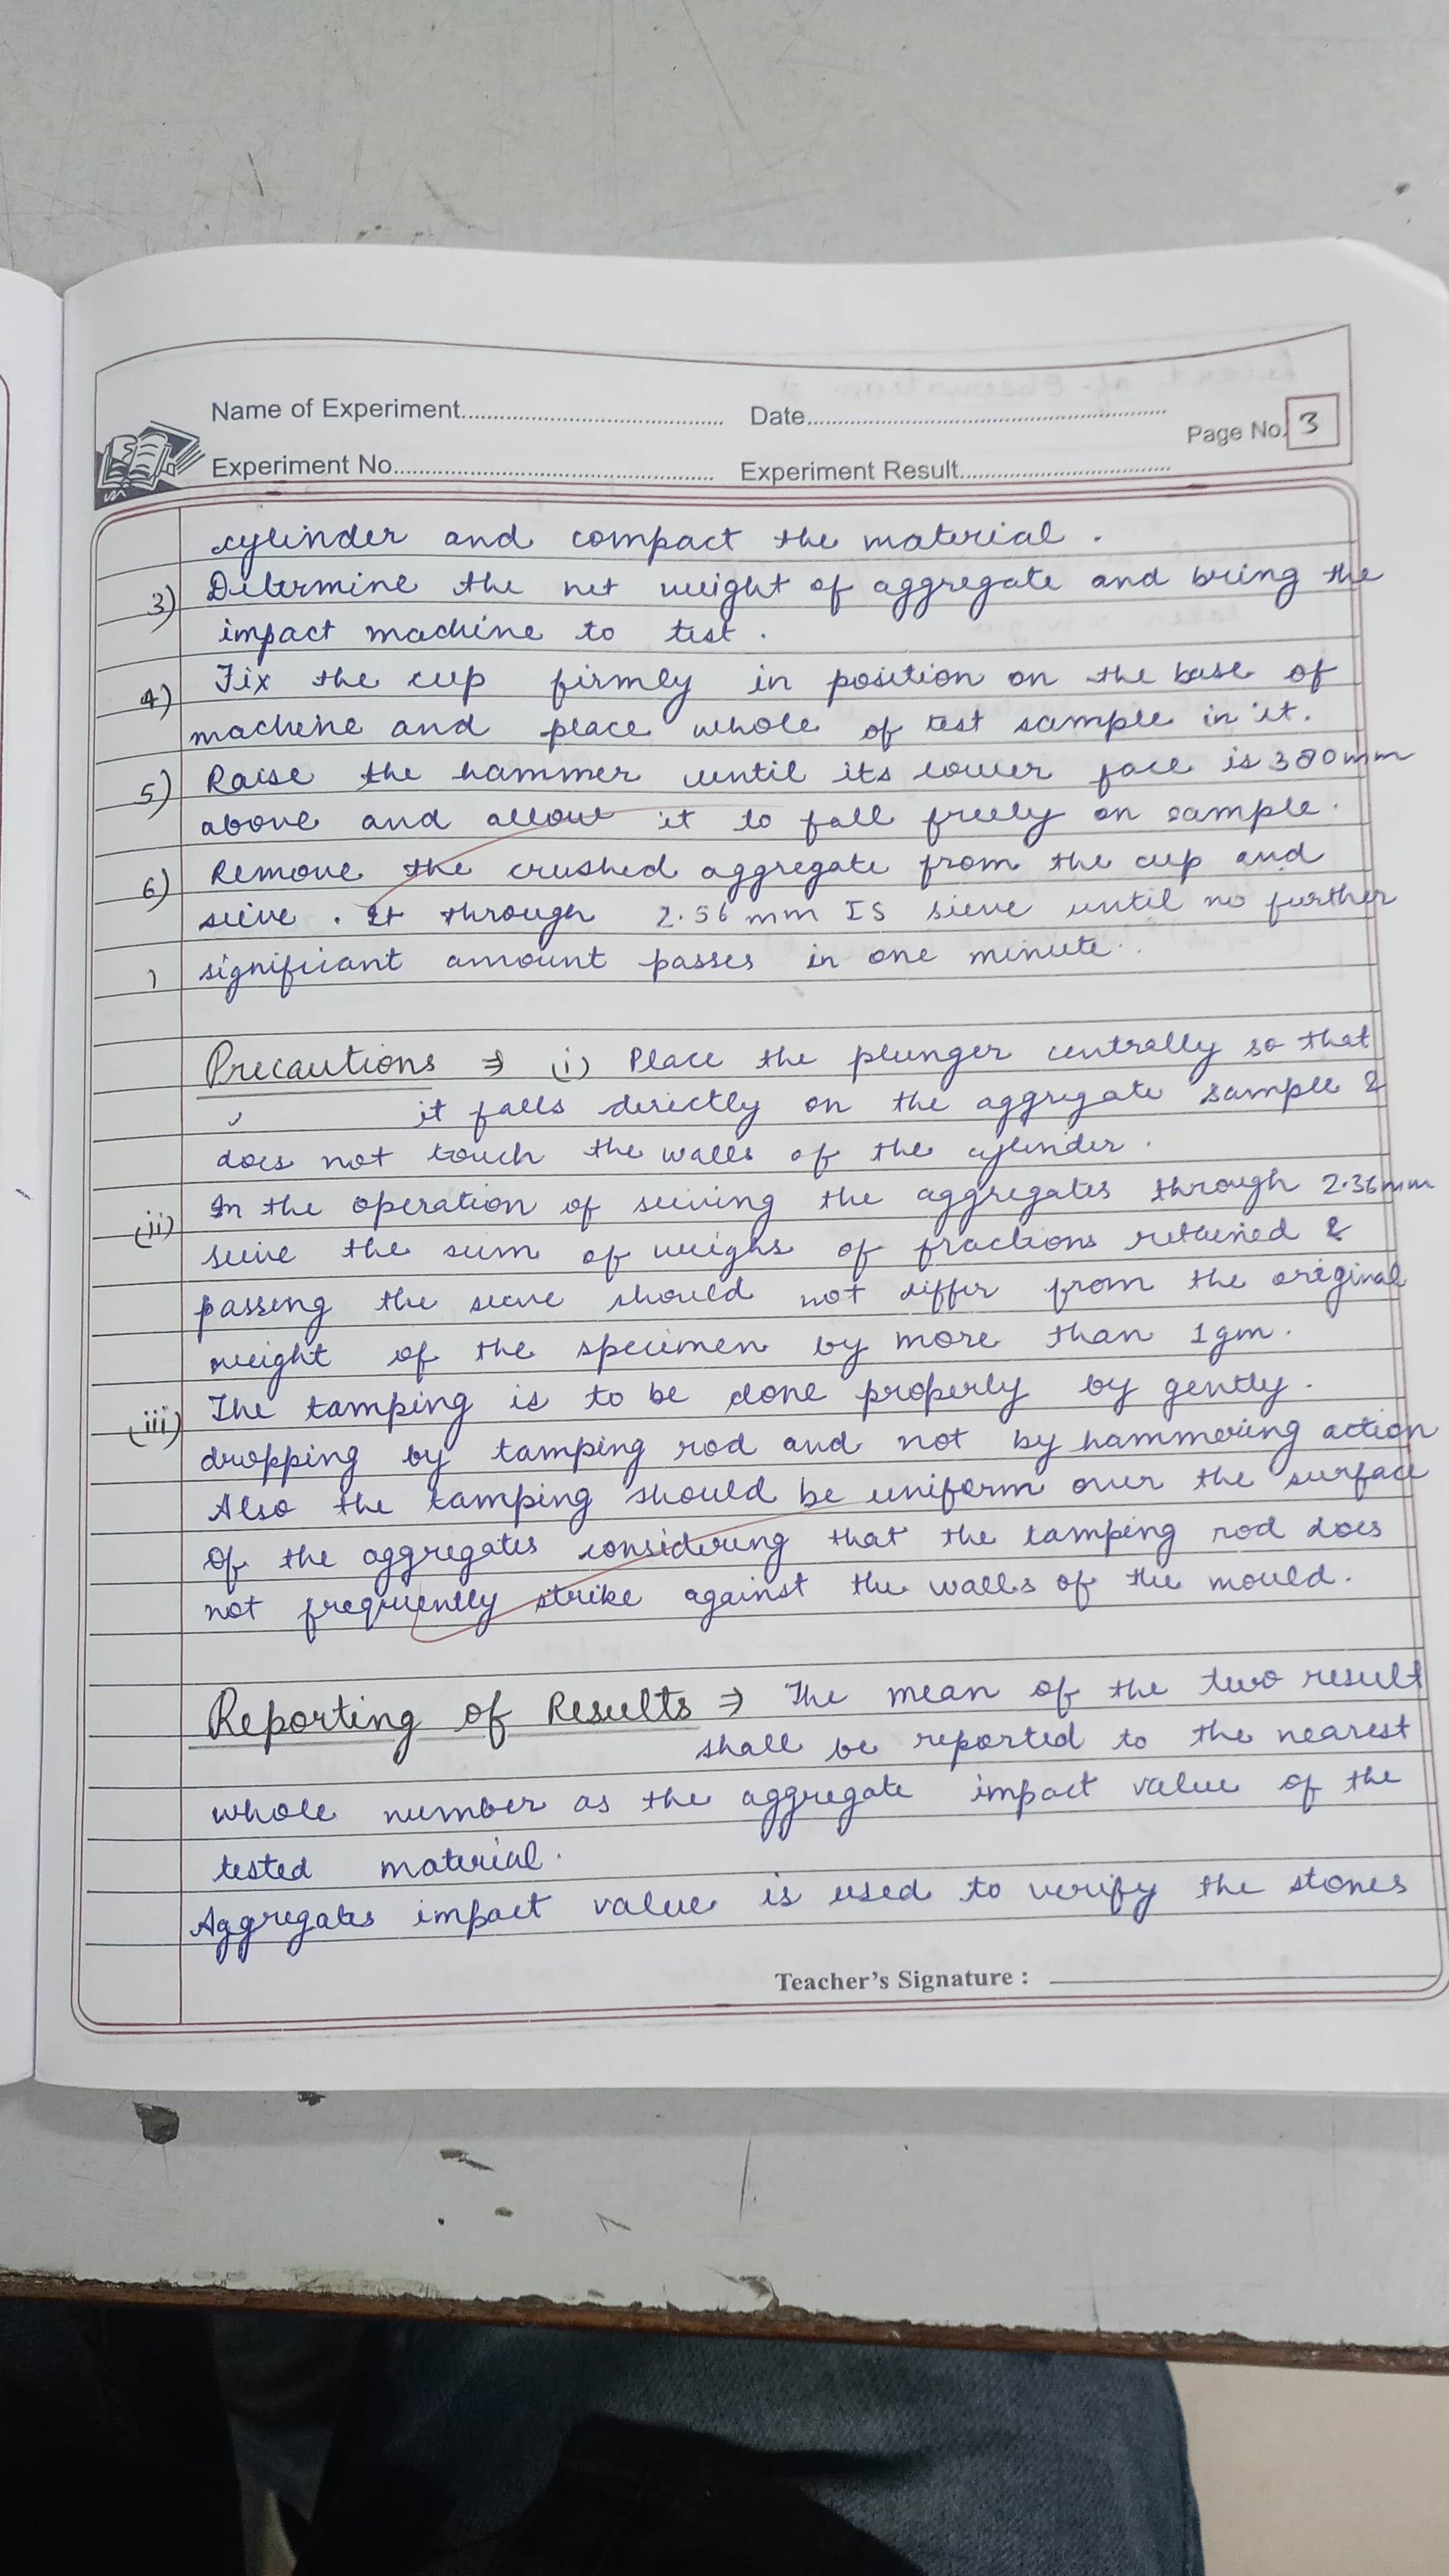 Name of Experiment............ Date............
Page No. 3
Experiment No............ Experiment Result............
cylinder and compact the material .
3) Determine the net weight of aggregate and bring the
impact machine to test .
4) Fix the cup firmly in position on the base of
machine and place whole of test sample in it.
5) Raise the hammer until its lower face is 380mm
above and allow it to fall freely on sample .
6) Remove the crushed aggregate from the cup and
seive . It through 2.56 mm IS sieve until no further
) significant amount passes in one minute .
Precautions ⇒ (i) Place the plunger centrally so that
it falls directly on the aggregate sample &
does not touch the walls of the cylinder .
(ii) In the operation of seiving the aggregates through 2.36mm
seive the sum of weighs of fractions retained &
passing the seive should not differ from the original
weight of the specimen by more than 1gm .
(iii) The tamping is to be done properly by gently .
dropping by tamping rod and not by hammering action
Also the tamping should be uniform over the surface
of the aggregates considering that the tamping rod does
not frequently strike against the walls of the mould .
Reporting of Results ⇒ The mean of the two result
shall be reported to the nearest
whole number as the aggregate impact value of the
tested material .
Aggregates impact value is used to verify the stones
Teacher's Signature :